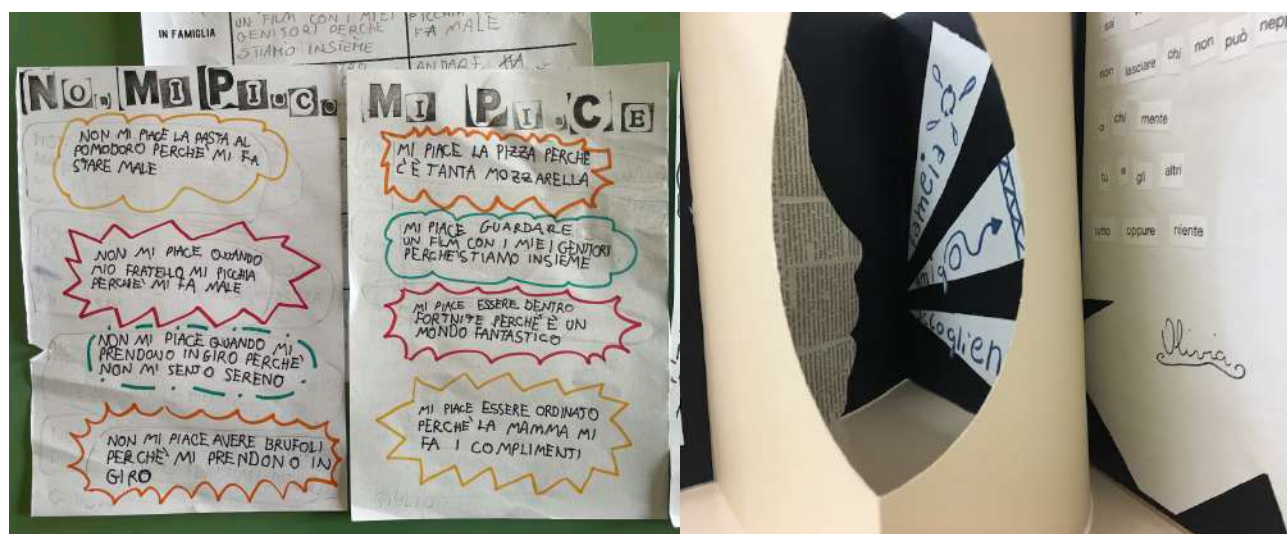 IN FAMIGLIA
UN FILM CON I MIEI
GENITORI PERCHE
STIAMO INSIEME
FA MALE
ANDARE
NO, MI PI.C.
NON MI PIACE LA PASTA AL
POMODORO PERCHE' MI FA
STARE MALE
NON MI PIACE QUANDO
MIO FRATELLO MI PICCHIA
PERCHE' MI FA MALE
NON MI PIACE QUANDO MI
PRENDONO IN GIRO PERCHE'
NON MI SENTO SERENO
NON MI PIACE AVERE BRUFOLI
PERCHE' MI PRENDONO IN
GIRO
MI PI.CE
MI PIACE LA PIZZA PERCHE
C'È TANTA MOZZARELLA
MI PIACE GUARDARE
UN FILM CON I MIEI GENITORI
PERCHE' STIAMO INSIEME
MI PIACE ESSERE DENTRO
FORTNITE PERCHÈ È UN
MONDO FANTASTICO
MI PIACE ESSERE ORDINATO
PERCHÈ LA MAMMA MI
FA I COMPLIMENTI
coglien
sai
non lasciare chi non può nepp
o chi mente
tu e gli altri
tutto oppure niente
Olivia